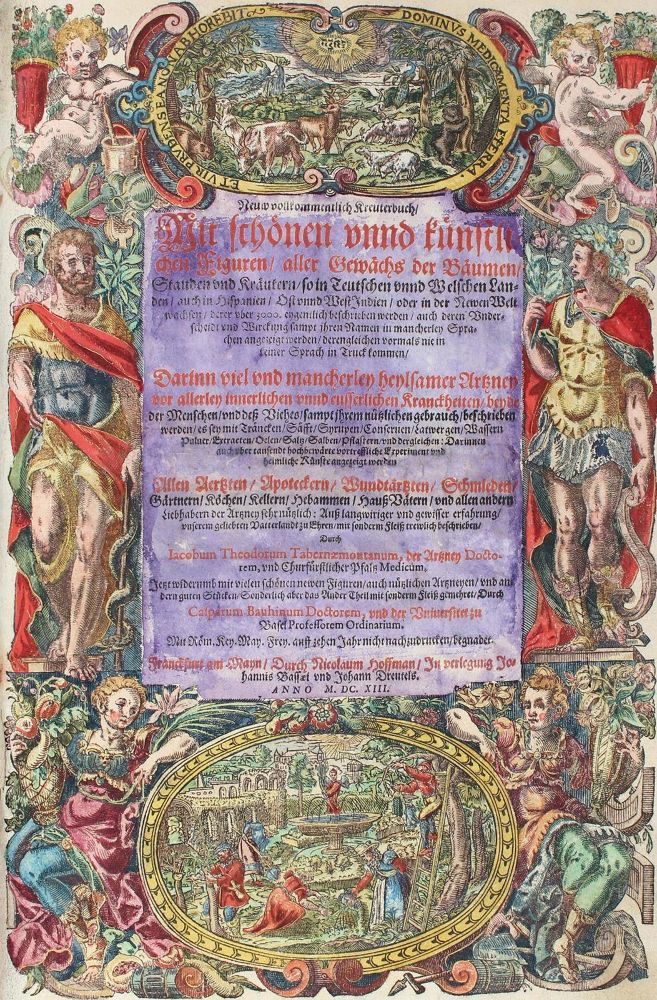 DOMINVS MEDICAMENTA E TERRA
ET VIR PRVDENS EA NON ABHOREBIT
יהוה
Neuw vollkommentlich Kreuterbuch/
Mit schönen vnnd künstli
chen Figuren/ aller Gewächs der Bäumen/
Stauden vnd Kräutern/ so in Teutschen vnnd Welschen Lan-
den/ auch in Hispanien/ Ost vnnd West Indien/ oder in der Newen Welt
wachsen/ derer vber 3000. eygentlich beschrieben werden/ auch deren Vnder-
scheidt vnd Wirckung sampt ihren Namen in mancherley Spra-
chen angezeigt werden/ derengleichen vormals nie in
keiner Sprach in Truck kommen/
Darinn viel vnd mancherley heylsamer Artzney
vor allerley innerlichen vnnd eusserlichen Kranckheiten/ beyde
der Menschen/ vnd deß Viehes/ sampt ihrem nützlichen gebrauch/ beschrieben
werden/ es sey mit Träncken/ Säfft/ Syrupen/ Conserven/ Latwergen/ Wassern
Puluer/ Extracten/ Oelen/ Saltz/ Salben/ Pflastern/ vnd dergleichen: Darinnen
auch vber tausendt hochbewärte vortreffliche Experiment vnd
heimliche Künste angezeigt werden
Allen Aertzten/ Apoteckern/ Wundtärtzten/ Schmieden/
Gärtnern/ Köchen/ Kellern/ Hebammen/ Hauß Vätern/ vnd allen andern
Liebhabern der Artzney sehr nützlich: Auß langwiriger vnd gewisser erfahrung/
vnserem geliebten Vatterlandt zu Ehren/ mit sonderm Fleiß trewlich beschrieben/
Durch
Iacobum Theodorum Tabernæmontanum, der Artzney Docto-
rem, vnd Churfürstlicher Pfaltz Medicum,
Jetzt widerumb mit vielen schönen newen Figuren/ auch nützlichen Artzneyen/ vnd an
dern guten Stücken/ Sonderlich aber das Ander Theil mit sonderm Fleiß gemehret/ Durch
Casparum Bauhinum Doctorem, vnd der Vniuersitet zu
Basel Professorem Ordinarium.
Mit Röm. Key. May. Frey. auff zehen Jahr nicht nachzudrucken/ begnadet.
Franckfurt am Mayn/ Durch Nicolaum Hoffman/ In verlegung Jo-
hannis Bassæi vnd Johann Dreutels.
ANNO M. DC. XIII.